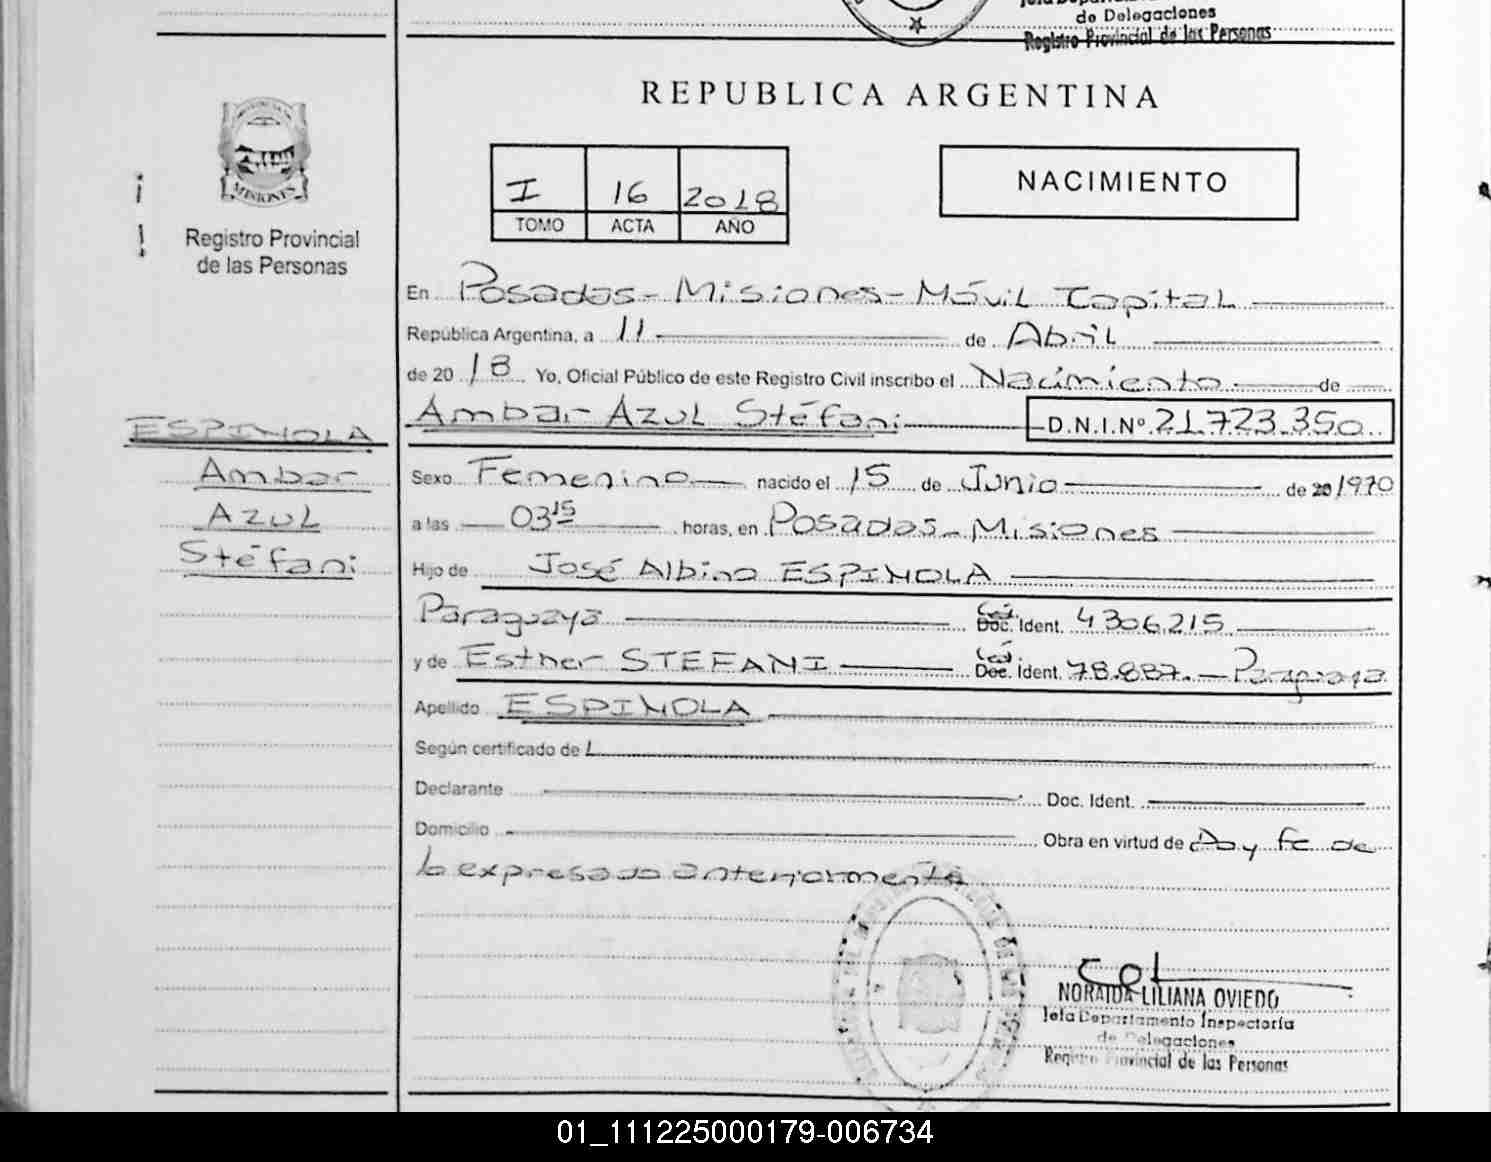 de Delegaciones
Registro Provincial de las Personas
REPUBLICA ARGENTINA
MISIONES
Registro Provincial
de las Personas
I 16 2018
TOMO ACTA AÑO
NACIMIENTO
En Posadas - Misiones - Móvil Capital
República Argentina, a 11 de Abril
de 20 18 Yo, Oficial Público de este Registro Civil inscribo el Nacimiento de
Ambar Azul Stéfani D.N.I.Nº 21.723.350
ESPINOLA
Ambar
Azul
Stéfani
Sexo Femenino nacido el 15 de Junio de 20 1970
a las 03 15 horas, en Posadas - Misiones
Hijo de José Albino ESPINOLA
Paraguaya Ced. Doc. Ident. 4306.215
y de Esther STEFANI Ced. Doc. Ident. 78.887. - Paraguaya
Apellido ESPINOLA
Según certificado de
Declarante Doc. Ident.
Domicilio Obra en virtud de Doy fe de
lo expresado anteriormente
NORAIDA LILIANA OVIEDO
Jefa Departamento Inspectoría
de Delegaciones
Registro Provincial de las Personas
01_111225000179-006734